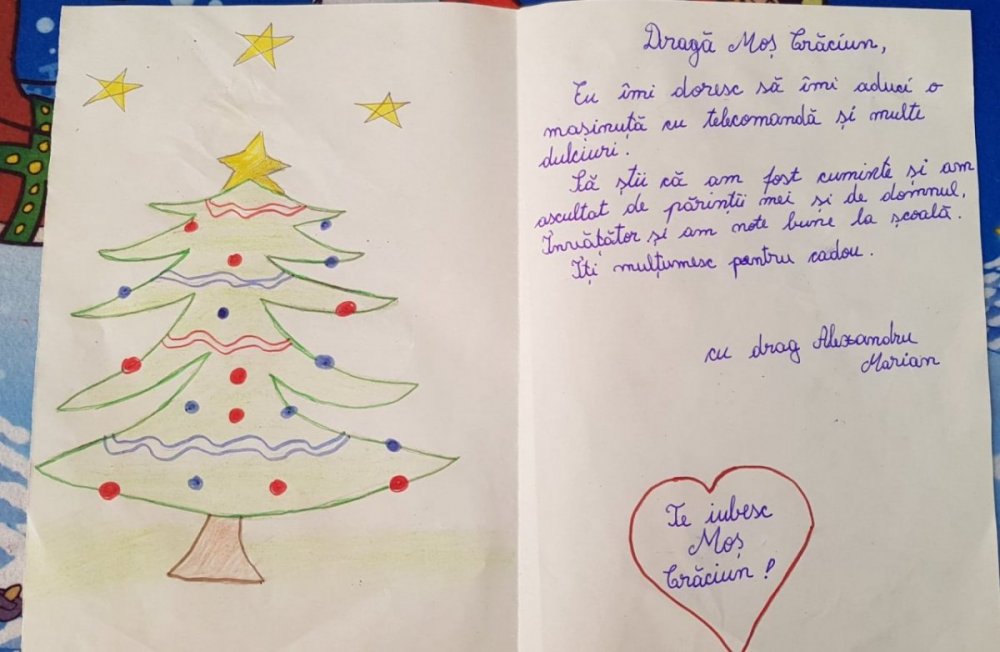 Dragă Moș Crăciun,
Eu îmi doresc să îmi aduci o
mașinuță cu telecomandă și multe
dulciuri.
Să știi că am fost cuminte și am
ascultat de părinții mei și de domnul,
Învățător și am note bune la școală.
Iți mulțumesc pentru cadou.
cu drag Alexandru
Marian
Te iubesc
Moș
Crăciun!